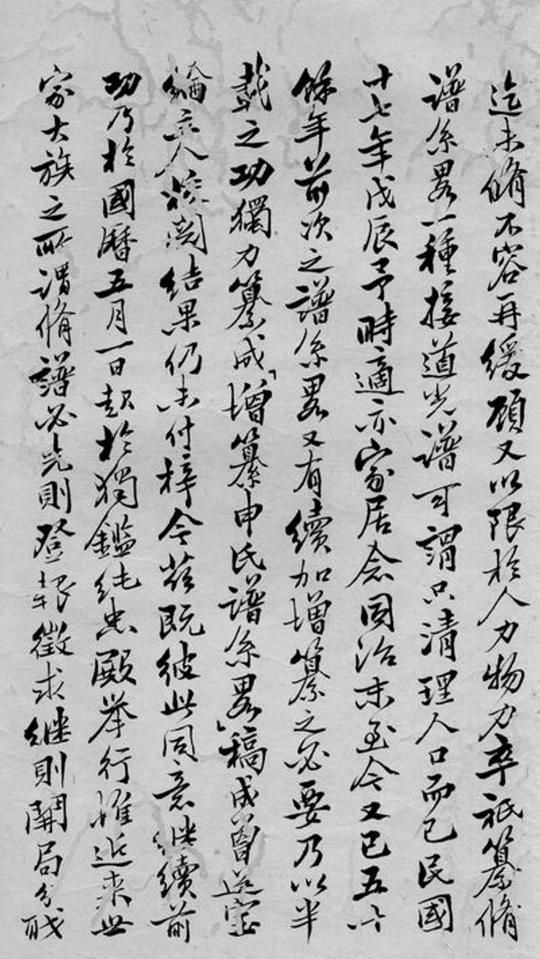 迄未脩不容再緩顧又以限於人力物力卒祇纂脩
譜系畧一種接道光譜可謂只清理人口而已民國
十七年戊辰予時適亦家居念同治末至今又已五六
餘年前次之譜系畧又有續加增纂之必要乃以半
載之功獨力纂成「增纂申氏譜系畧」稿成曾送宝
綸文人校閱結果仍未付梓今茲既彼此同意繼續前
功乃於國曆五月一日起於獨鑑純忠殿舉行惟近來世
家大族之所謂脩譜必先則登報徵求繼則開局分職